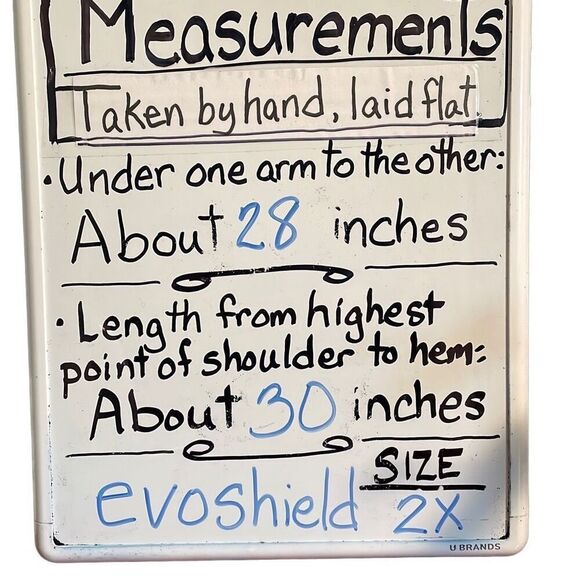 Measurements
Taken by hand, laid flat
• Under one arm to the other:
About 28 inches
• Length from highest
point of shoulder to hem:
About 30 inches
SIZE
evoshield 2X
U BRANDS